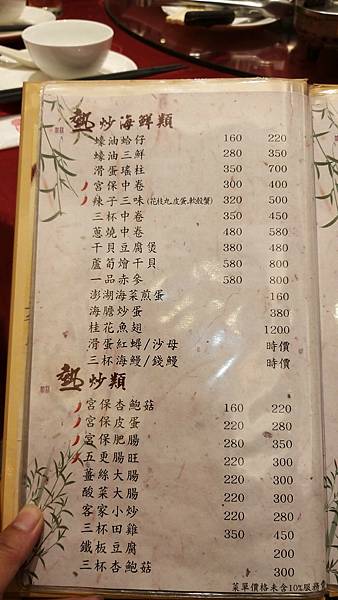 熱炒海鮮類
蠔油蛤仔 160 220
蠔油三鮮 280 350
滑蛋瑤柱 350 700
宮保中卷 300 400
辣子三味(花枝丸,皮蛋,軟殼蟹) 320 500
三杯中卷 350 450
蔥燒中卷 480 580
干貝豆腐煲 380 480
蘆筍燴干貝 580 800
一品赤參 580 800
澎湖海菜煎蛋 160
海膽炒蛋 380
桂花魚翅 1200
滑蛋紅蟳/沙母 時價
三杯海鰻/錢鰻 時價
熱炒類
宮保杏鮑菇 160 220
宮保皮蛋 220 280
宮保肥腸 280 350
五更腸旺 220 300
薑絲大腸 220 300
酸菜大腸 220 300
客家小炒 220 280
三杯田雞 350 450
鐵板豆腐 200
三杯杏鮑菇 300
菜單價格未含10%服務